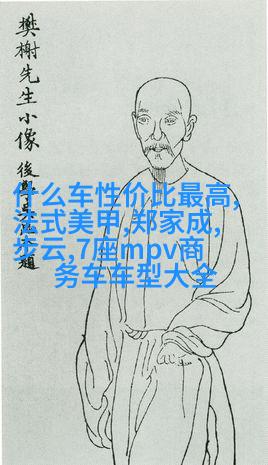 樊榭先生小像
後 題
什么车性价比最高,
法式美甲,郑家成,
步云,7座mpv商
务车车型大全